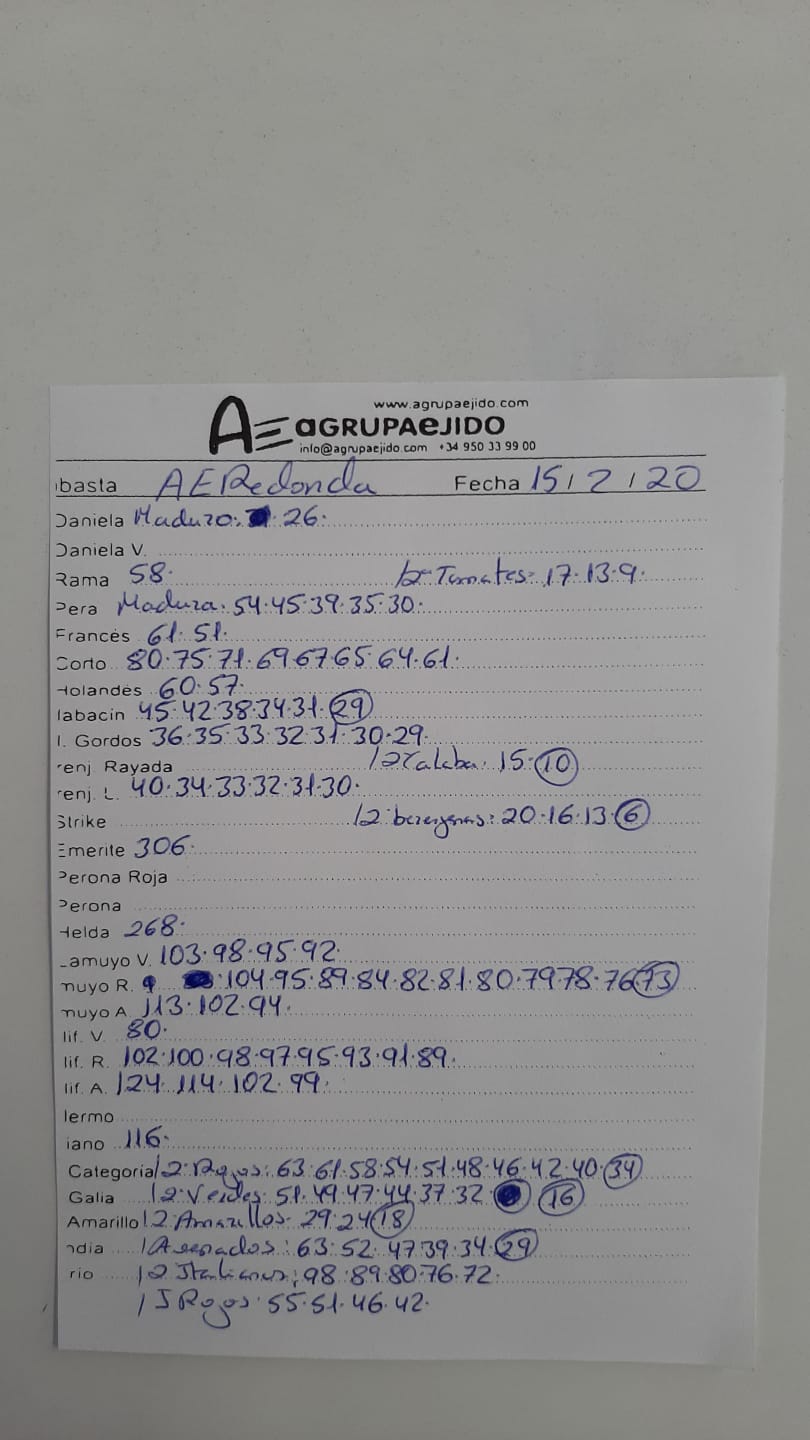 www.agrupaejido.com
AE aGRUPAeJIDO
info@agrupaejido.com +34 950 33 99 00
basta AERedonda Fecha 15/2/20
Daniela Maduro: 26.
Daniela V.
Rama 58. /2ª Tomates: 17.13.9.
Pera Madura. 54.45.39.35.30.
Francés 61.51.
Corto 80.75.71.69.67.65.64.61.
Holandés 60.57.
labacin 45.42.38.34.31.29
l. Gordos 36.35.33.32.31.30.29.
enj. Rayada 15.10
enj. L. 40.34.33.32.31.30.
Strike /2 berengenas: 20.16.13.6
Emerite 306.
Perona Roja
Perona
Helda 268.
Lamuyo V. 103.98.95.92.
muyo R. 104.95.89.84.82.81.80.79.78.76.73
muyo A. 113.102.94.
lif. V. 80.
lif. R. 102.100.98.97.95.93.91.89.
lif. A. 124.114.102.99.
lermo
iano 116.
Categoria /2 Rojos: 63.61.58.54.51.48.46.42.40.34
Galia /2 Verdes: 51.49.47.44.37.32. 16
Amarillo /2 Amarillos. 29.24.18
ndia /Asurcados: 63.52.47.39.34.29
rio /2 Italianos: 98.89.80.76.72.
/J Rojos: 55.51.46.42.